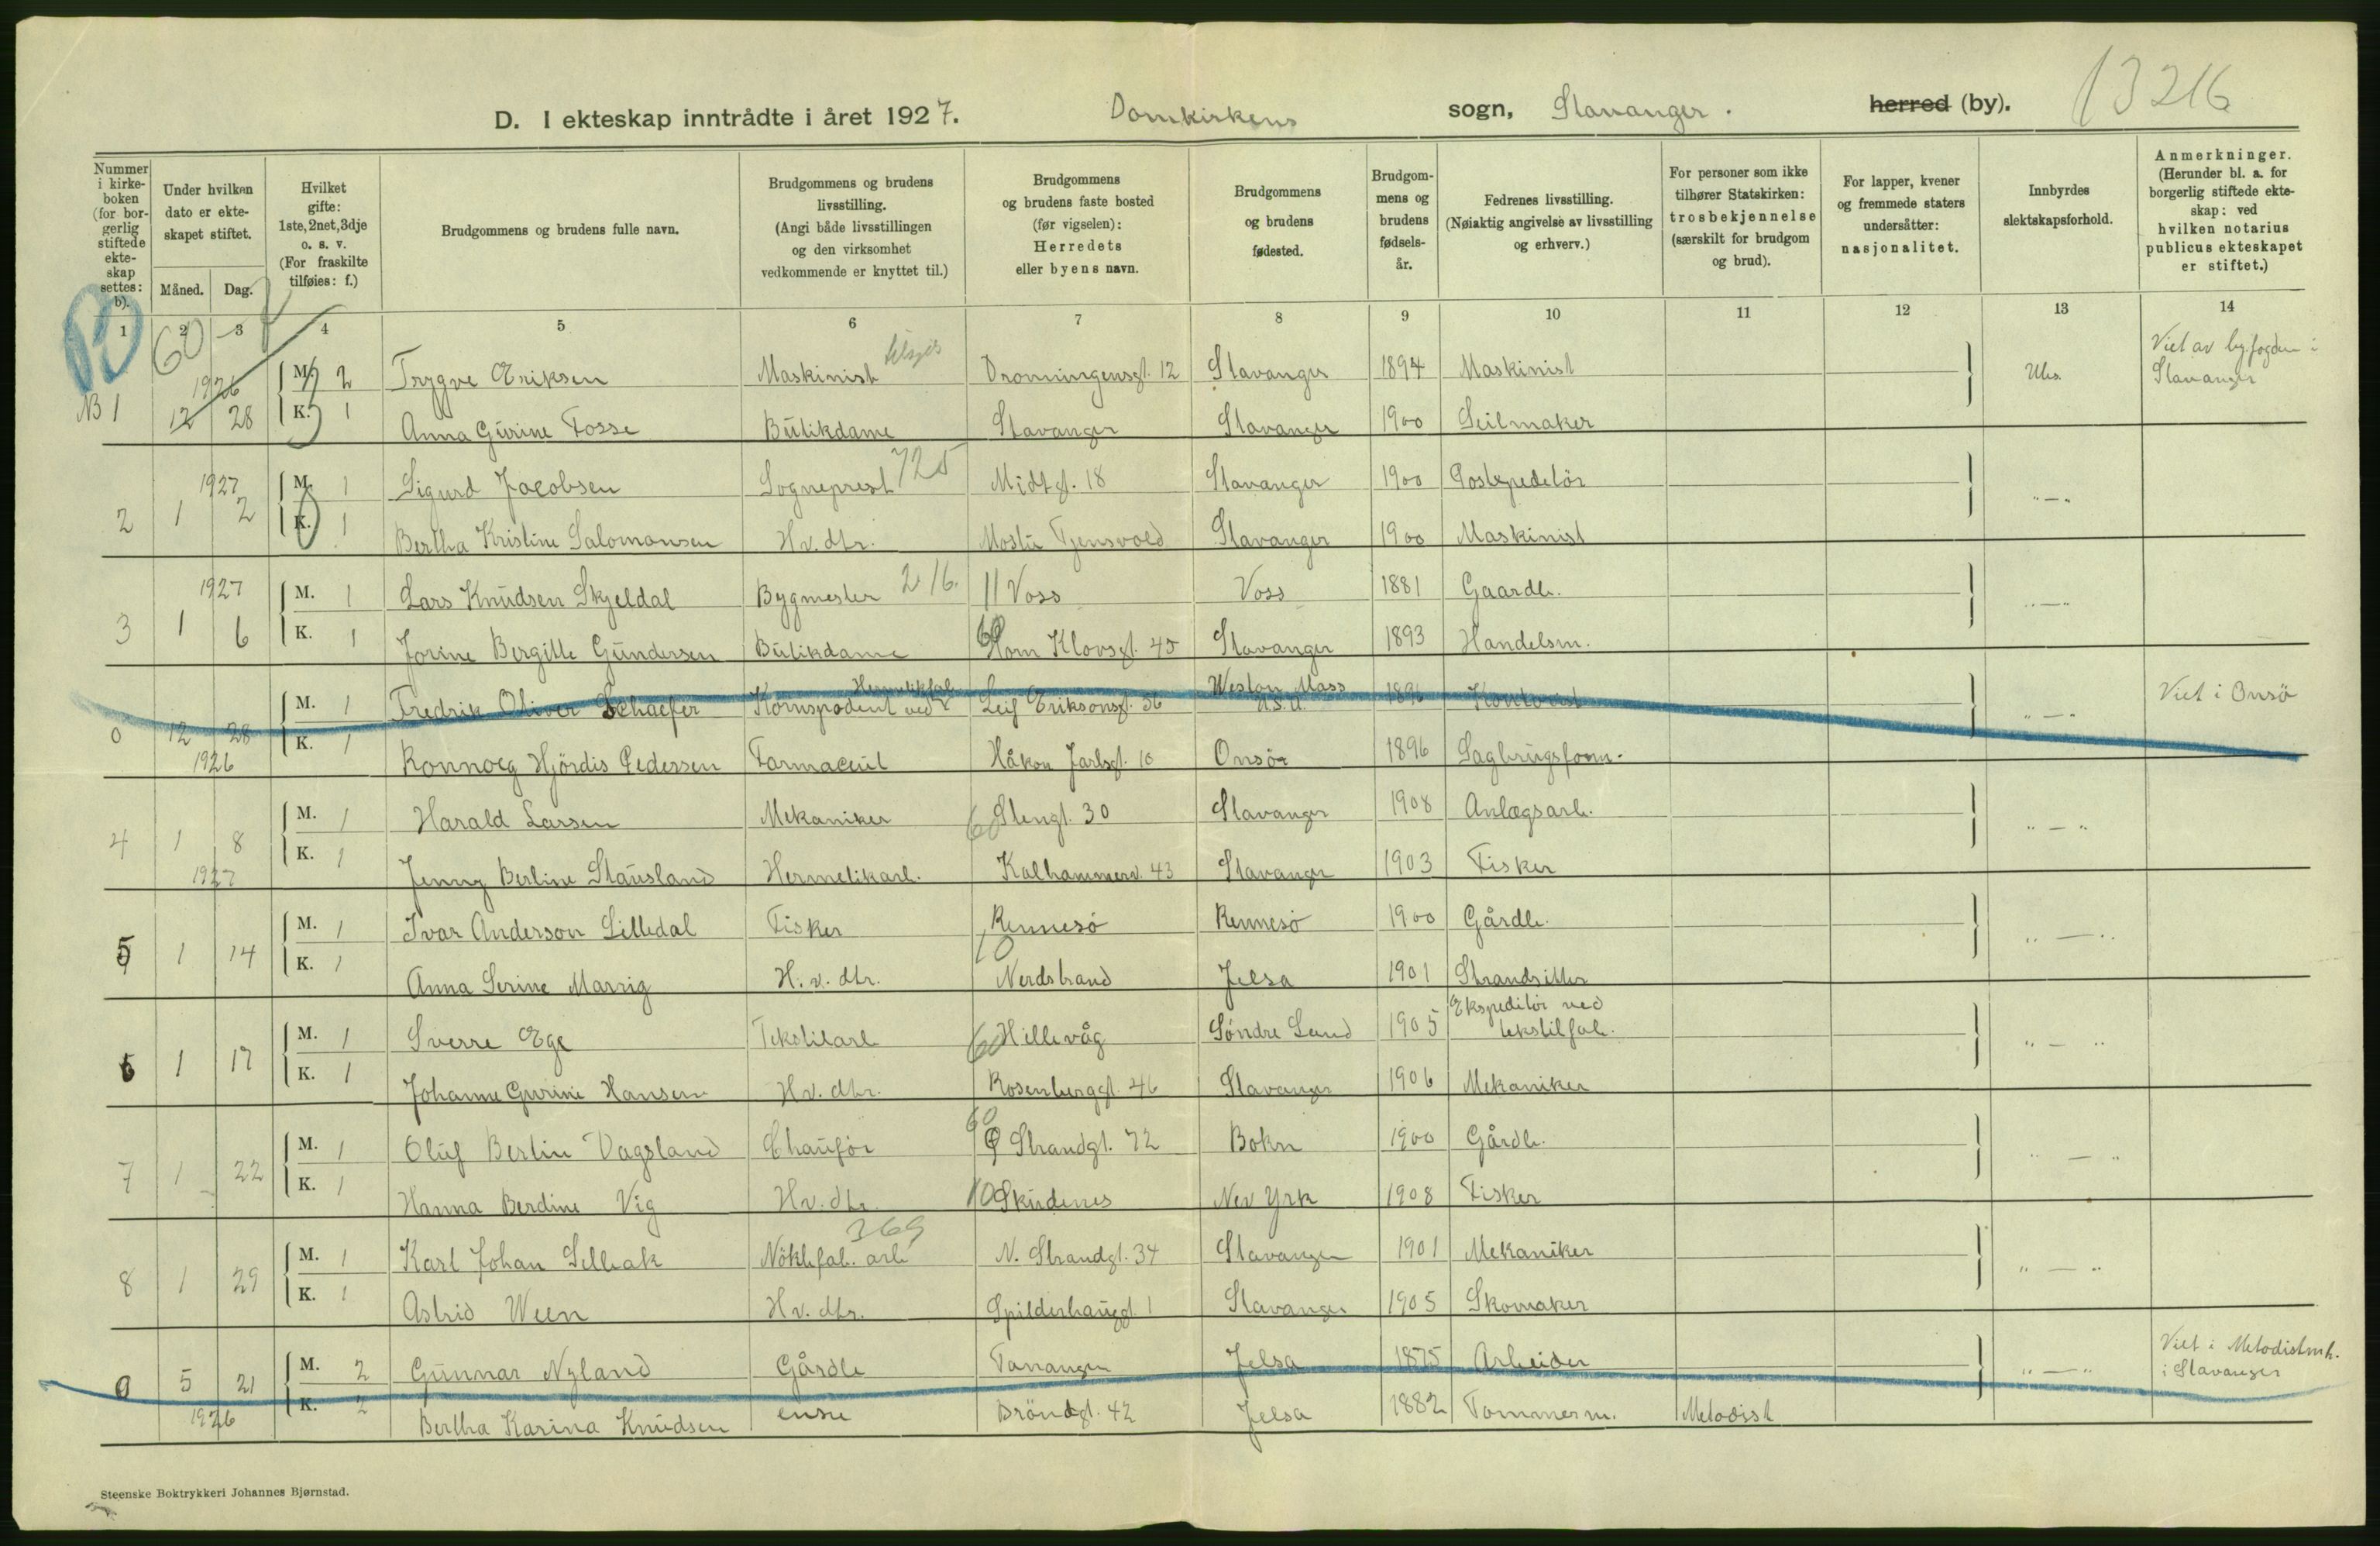 D. I ekteskap inntrådte i året 1927. Domkirkens sogn, Stavanger. herred (by). 13216
Nummer i kirkeboken (for borgerlig stiftede ekteskap settes: b).
Under hvilken dato er ekteskapet stiftet.
Måned. Dag.
Hvilket gifte: 1ste, 2net, 3dje o. s. v. (For fraskilte tilføies: f.)
Brudgommens og brudens fulle navn.
Brudgommens og brudens livsstilling. (Angi både livsstillingen og den virksomhet vedkommende er knyttet til.)
Brudgommens og brudens faste bosted (før vigselen): Herredets eller byens navn.
Brudgommens og brudens fødested.
Brudgommens og brudens fødselsår.
Fedrenes livsstilling. (Nøiaktig angivelse av livsstilling og erhverv.)
For personer som ikke tilhører Statskirken: trosbekjennelse (særskilt for brudgom og brud).
For lapper, kvener og fremmede staters undersåtter: nasjonalitet.
Innbyrdes slektskapsforhold.
Anmerkninger. (Herunder bl. a. for borgerlig stiftede ekteskap: ved hvilken notarius publicus ekteskapet er stiftet.)
1 2 3 4 5 6 7 8 9 10 11 12 13 14
60
1926 M. 2 Trygve Eriksen Maskinist Dronningensgt. 12 Stavanger 1894 Maskinist Ubs. Viet av byfogden i Stavanger
NB 1 12 28 K. 1 Anna Gurine Fosse Butikdame Stavanger Stavanger 1900 Seilmaker
1927 M. 1 Sigurd Jacobsen Sogneprest 725 Midtgt. 18 Stavanger 1900 Postexpeditör " — "
2 1 2 K. 1 Bertha Kristine Salomonsen Hv. dtr. Tjensvold Stavanger 1900 Maskinist
1927 M. 1 Lars Knudsen Skjeldal Bygmester 216. 11 Voss Voss 1881 Gaardb. " — "
3 1 6 K. 1 Jorine Bergitte Gundersen Butikdame Klovsgt. 45 Stavanger 1893 Handelsm.
M. 1 Fredrik Oliver Schaefer Kornspodent ved Hermetikfab. Leif Eriksonsgt. 56 Weston Mass U.S.A. 1896 " — " Viet i Onsö
0 12 28 1926 K. 1 Ronnoeg Hjördis Pedersen Farmaceut Håkon Jarlsgt. 10 Onsö 1896 Sagbrugsform.
M. 1 Harald Larsen Mekaniker 60 Stengt. 30 Stavanger 1908 Anlægsarb. " — "
4 1 8 1927 K. 1 Jenny Berline Stausland Hermetikarb. Kalhammerv. 43 Stavanger 1903 Fisker
M. 1 Ivar Anderson Lilledal Fisker Rennesö Rennesö 1900 Gårdb. " — "
5 1 14 K. 1 Anna Serine Marvig H. v. dtr. 10 Nerdstrand Jelsa 1901 Strandsitter
M. 1 Sverre Ege Tekstilarb 60 Hillevåg Söndre Land 1905 Ekspeditör ved tekstilfab. " — "
6 1 17 K. 1 Johanne Gurine Hansen Hv. dtr. Rosenberggt. 46 Stavanger 1906 Mekaniker
M. 1 Oluf Bertin Vagsland Chauför 60 Strandgt. 72 Bokn 1900 Gårdb. " — "
7 1 22 K. 1 Hanna Berdine Vig Hv. dtr. 10 Skudenes Nev Yrk 1908 Fisker
M. 1 Karl Johan Selbak Nöklefab. arb 369 N. Strandgt. 34 Stavanger 1901 Mekaniker " — "
8 1 29 K. 1 Astrid Ween Hv. dtr. Spilderhauggt. 1 Stavanger 1905 Skomaker
M. 2 Gunnar Nyland Gårdb Tananger Jelsa 1875 Arbeider " — " Viet i Metodistmk. i Stavanger
0 5 21 1926 K. 2 Bertha Karina Knudsen enke Bröndgt. 42 Jelsa 1882 Tømmerm. Metodist
Steenske Boktrykkeri Johannes Bjørnstad.